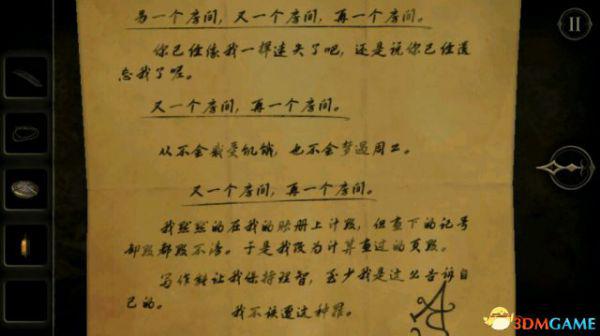 另一个房间，又一个房间，再一个房间。
你已经像我一样迷失了吧，还是说你已经遗
忘我了呢。
又一个房间，再一个房间。
从不会感受饥饿，也不会梦遇周二。
又一个房间，再一个房间。
我默默的在我的账册上计数，但查下的记号
都数都数不清。于是我改为计算查过的页数。
写作能让我保持理智，至少我是这么告诉自
己的。
我不该遭这种罪。
3DMGAME